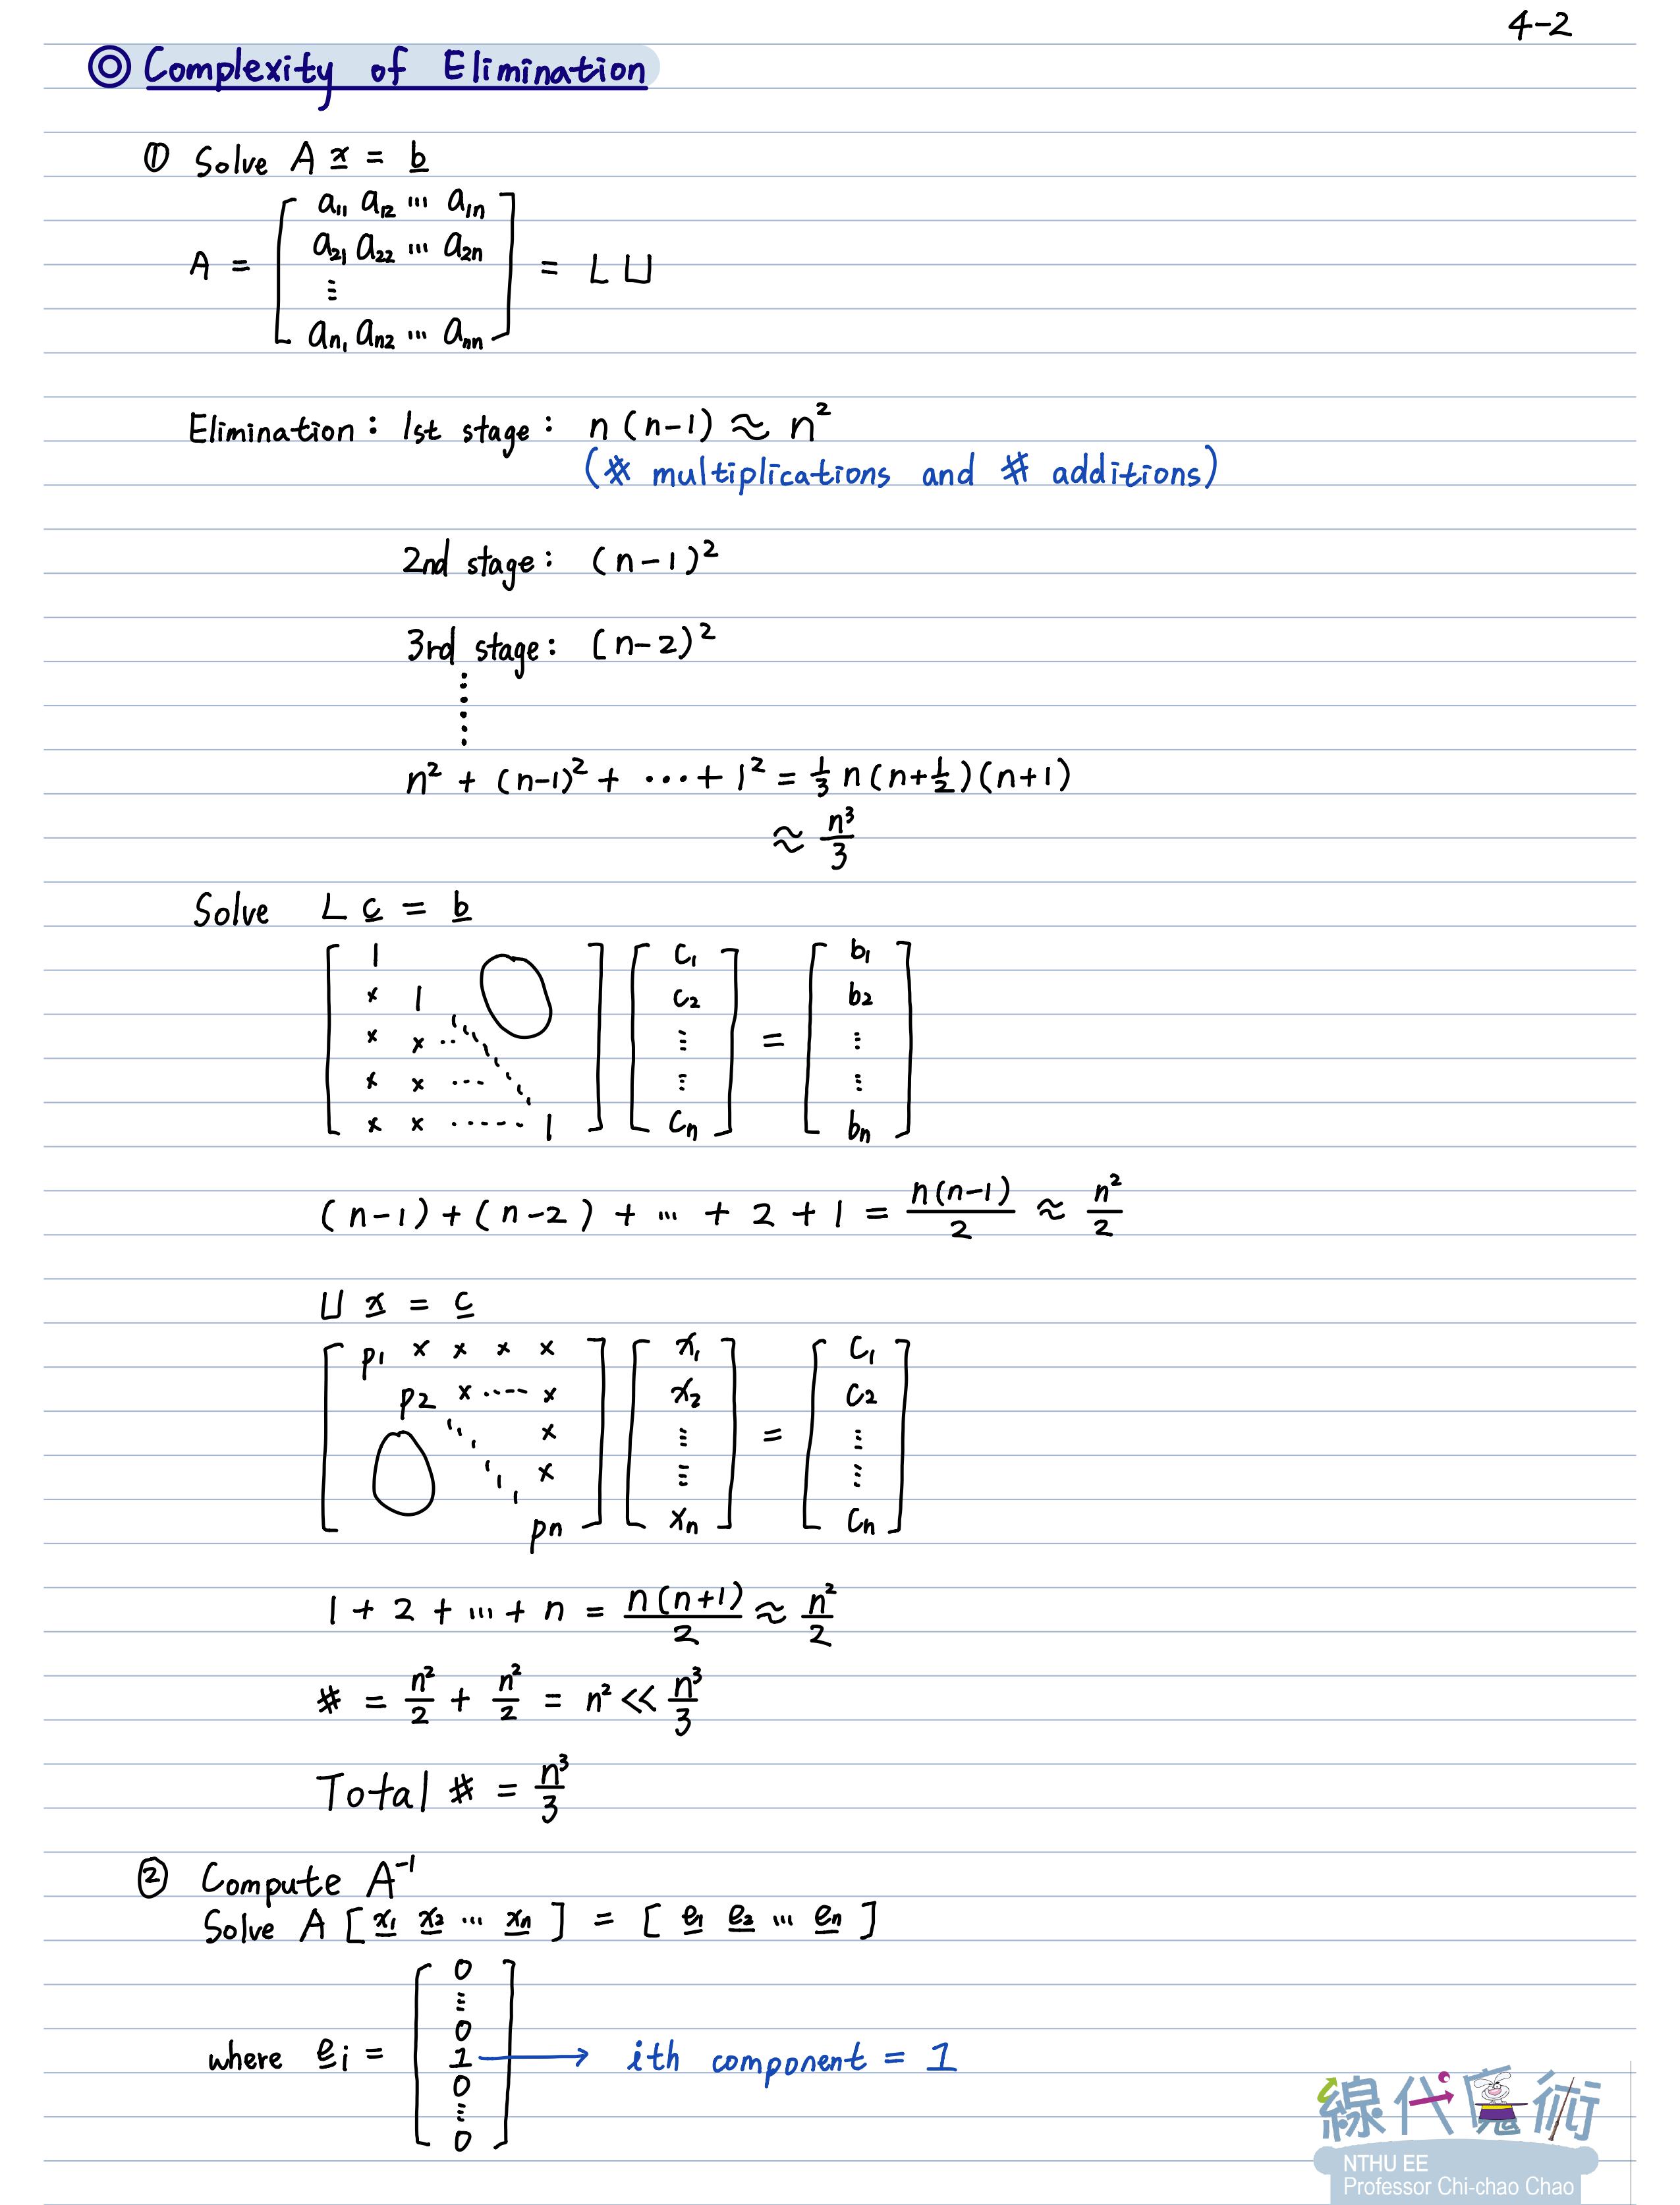 4-2
◎ Complexity of Elimination
① Solve A x = b
A = [ a11 a12 ... a1n
a21 a22 ... a2n
⋮
an1 an2 ... ann ] = L U
Elimination : 1st stage : n (n-1) ≈ n²
(# multiplications and # additions)
2nd stage : (n-1)²
3rd stage : (n-2)²
⋮
n² + (n-1)² + ... + 1² = 1/3 n (n+1/2)(n+1)
≈ n³/3
Solve L c = b
[ 1
x 1
x x ...
x x ...
x x ...... 1 ] [ c1 c2 ⋮ ⋮ cn ] = [ b1 b2 ⋮ ⋮ bn ]
(n-1) + (n-2) + ... + 2 + 1 = n(n-1)/2 ≈ n²/2
U x = c
[ p1 x x x x
p2 x ..... x
x
x
pn ] [ x1 x2 ⋮ ⋮ xn ] = [ c1 c2 ⋮ ⋮ cn ]
1 + 2 + ... + n = n(n+1)/2 ≈ n²/2
# = n²/2 + n²/2 = n² << n³/3
Total # = n³/3
② Compute A⁻¹
Solve A [ x1 x2 ... xn ] = [ e1 e2 ... en ]
where ei = [ 0 ⋮ 0 1 0 ⋮ 0 ] → ith component = 1
線代魔術
NTHU EE
Professor Chi-chao Chao